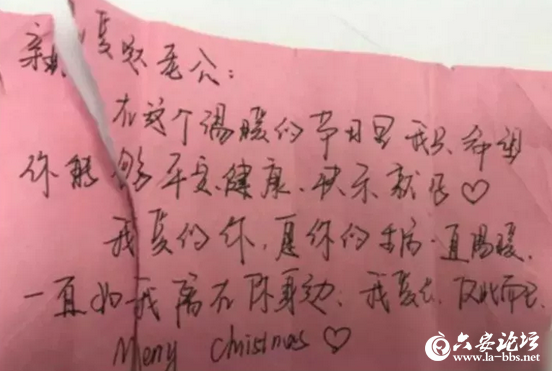 亲 夏 老公:
在这个温暖的节日里我只希望
你能够平安、健康、快乐就好♡
我爱的你,愿你的 一直温暖,
一直 我 在你身边、我爱 ,仅此而已.
Merry christmas ♡
六安论坛
www.la-bbs.net